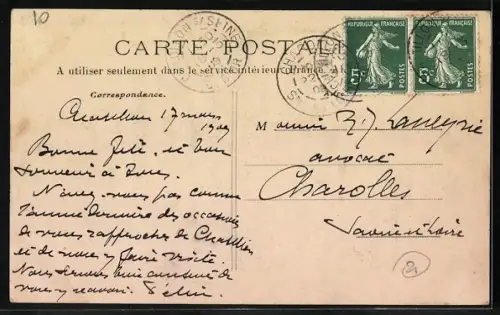 10
CARTE POSTALE
A utiliser seulement dans le service intérieur
Correspondance.
Chatillon 17 mars
Bonne fête, et bon
souvenir à tous.
N'avez-vous pas comme
l'année dernière des occasions
de vous rapprocher de Chatillon
et de nous y faire visite.
Nous serions
vous y recevoir.
REPUBLIQUE FRANÇAISE
5c
POSTES
REPUBLIQUE FRANÇAISE
5c
POSTES
Monsieur
avocat
Charolles
Saône et Loire